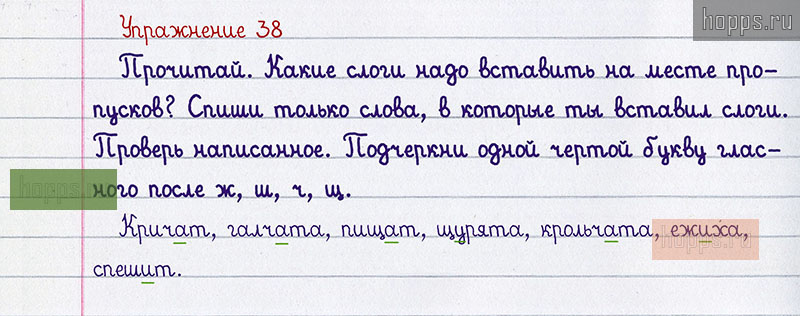 hopps.ru
Упражнение 38
Прочитай. Какие слоги надо вставить на месте про-
пусков? Спиши только слова, в которые ты вставил слоги.
Проверь написанное. Подчеркни одной чертой букву глас-
ного после ж, ш, ч, щ.
hopps.ru
Кричат, галчата, пищат, щурята, крольчата, ежиха,
hopps.ru
спешит.